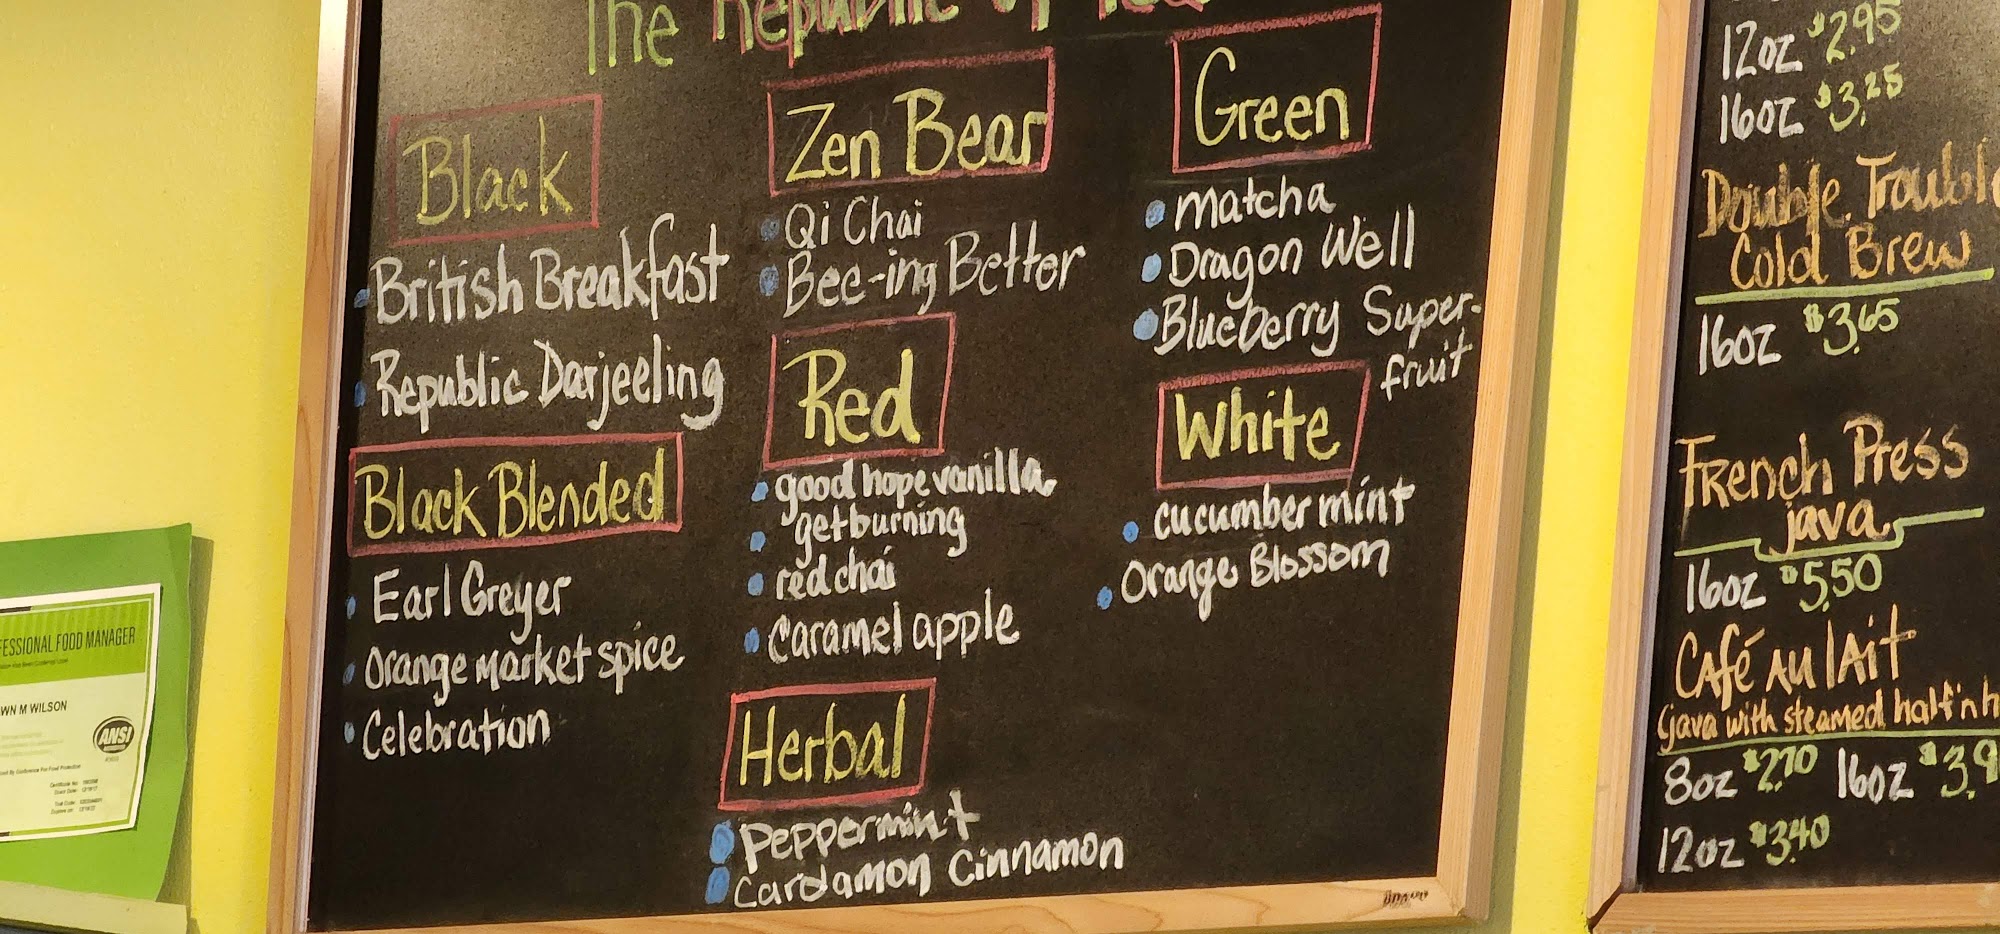 The Republic of Tea
Black
British Breakfast
Republic Darjeeling
Black Blended
Earl Greyer
Orange market spice
Celebration
Zen Bear
Qi Chai
Bee-ing Better
Red
good hope vanilla
get burning
red chai
Caramel apple
Herbal
Peppermint
Cardamon Cinnamon
Green
matcha
Dragon Well
Blueberry Super-
fruit
White
cucumber mint
Orange Blossom
12oz $2.95
16oz $3.25
Double Trouble
Cold Brew
16oz $3.65
French Press
java
16oz $5.50
Café Au lAit
(java with steamed half n h
8oz $2.70 16oz $3.9
12oz $3.40
FESSIONAL FOOD MANAGER
WN M WILSON
ANSI